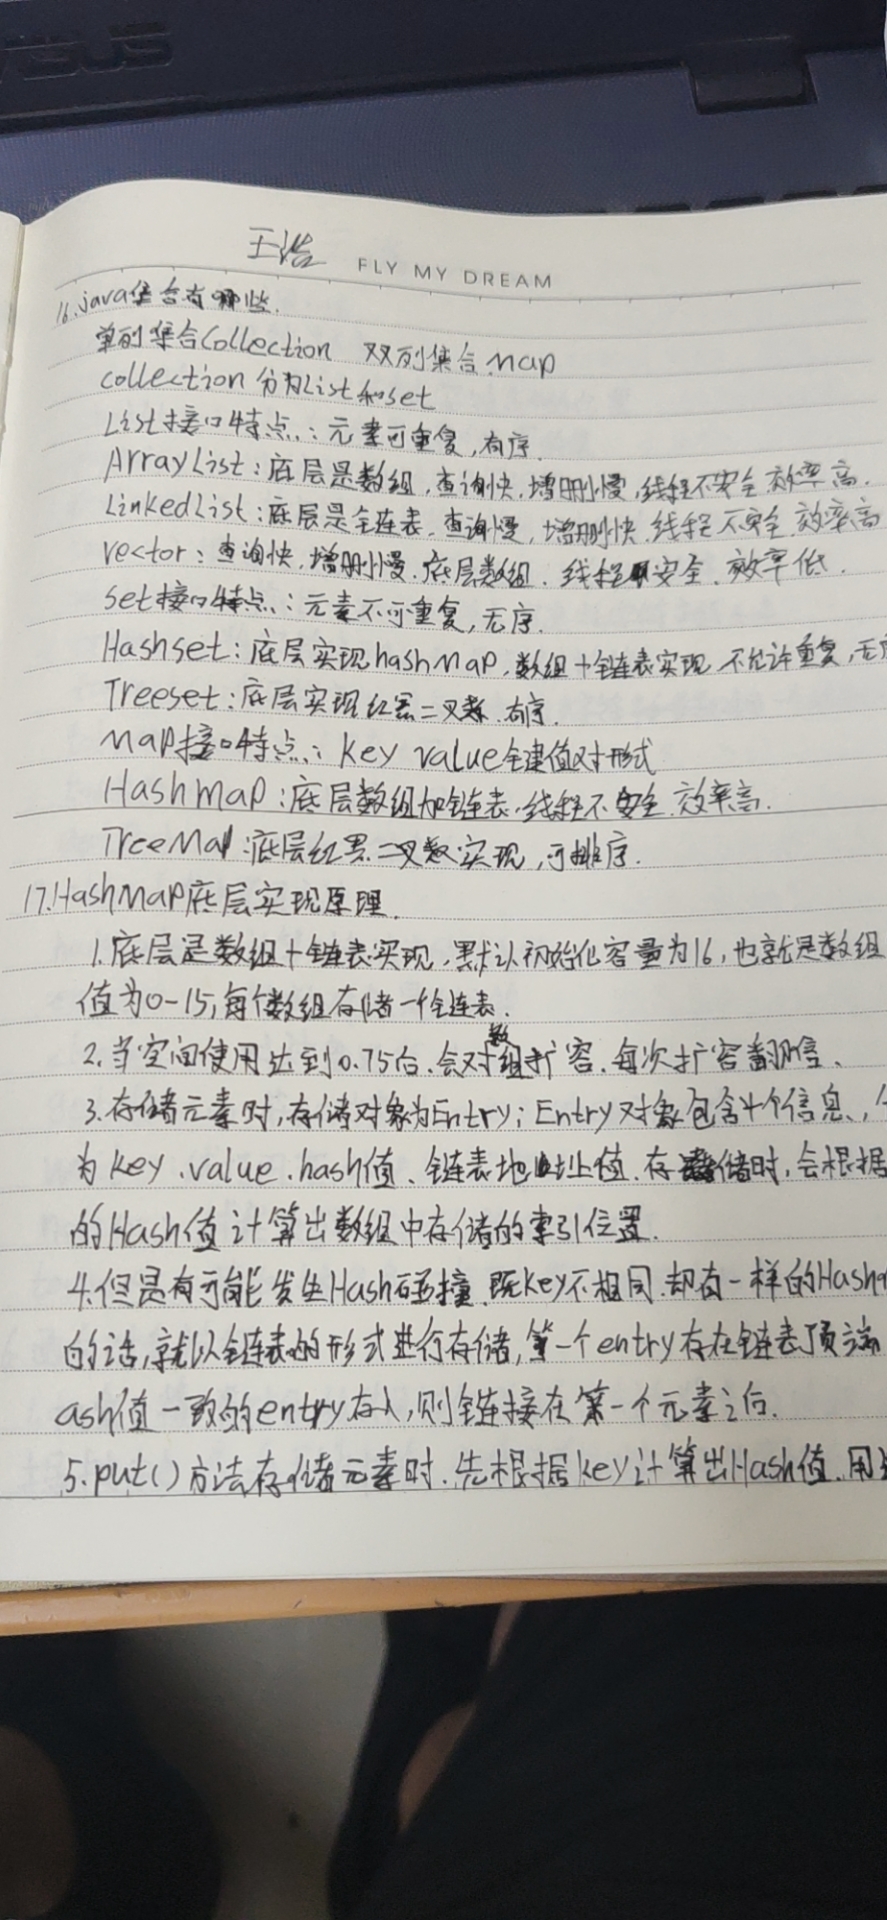 ASUS
王浩 FLY MY DREAM
16.java集合有哪些.
单列集合Collection 双列集合map
collection分为List和set
List接口特点:元素可重复,有序.
ArrayList:底层是数组,查询快,增删慢,线程不安全,效率高.
LinkedList:底层是链表,查询慢,增删快,线程不安全,效率高
vector:查询快,增删慢.底层数组.线程安全.效率低.
set接口特点:元素不可重复,无序.
Hashset:底层实现hashMap,数组+链表实现 不允许重复,无
Treeset:底层实现红黑二叉,有序.
map接口特点:key value键值对形式
Hashmap:底层数组加链表,线程不安全.效率高.
TreeMap:底层红黑二叉数实现,可排序.
17.HashMap底层实现原理.
1.底层是数组+链表实现,默认初始化容量为16,也就是数组
值为0-15,每个数组存储一个链表.
2.当空间使用达到0.75后.会对数组扩容.每次扩容翻倍、
3.存储元素时,存储对象为Entry;Entry对象包含4个信息,
为key.value.hash值、链表地址值.存储时,会根据
的Hash值计算出数组中存储的索引位置.
4.但是有可能发生Hash碰撞.既key不相同.却有一样的Hash
的话,就以链表的形式进行存储,第一个entry存在链表顶端
ash值一致的entry存入,则链接在第一个元素之后.
5.put()方法存储元素时.先根据key计算出Hash值.用